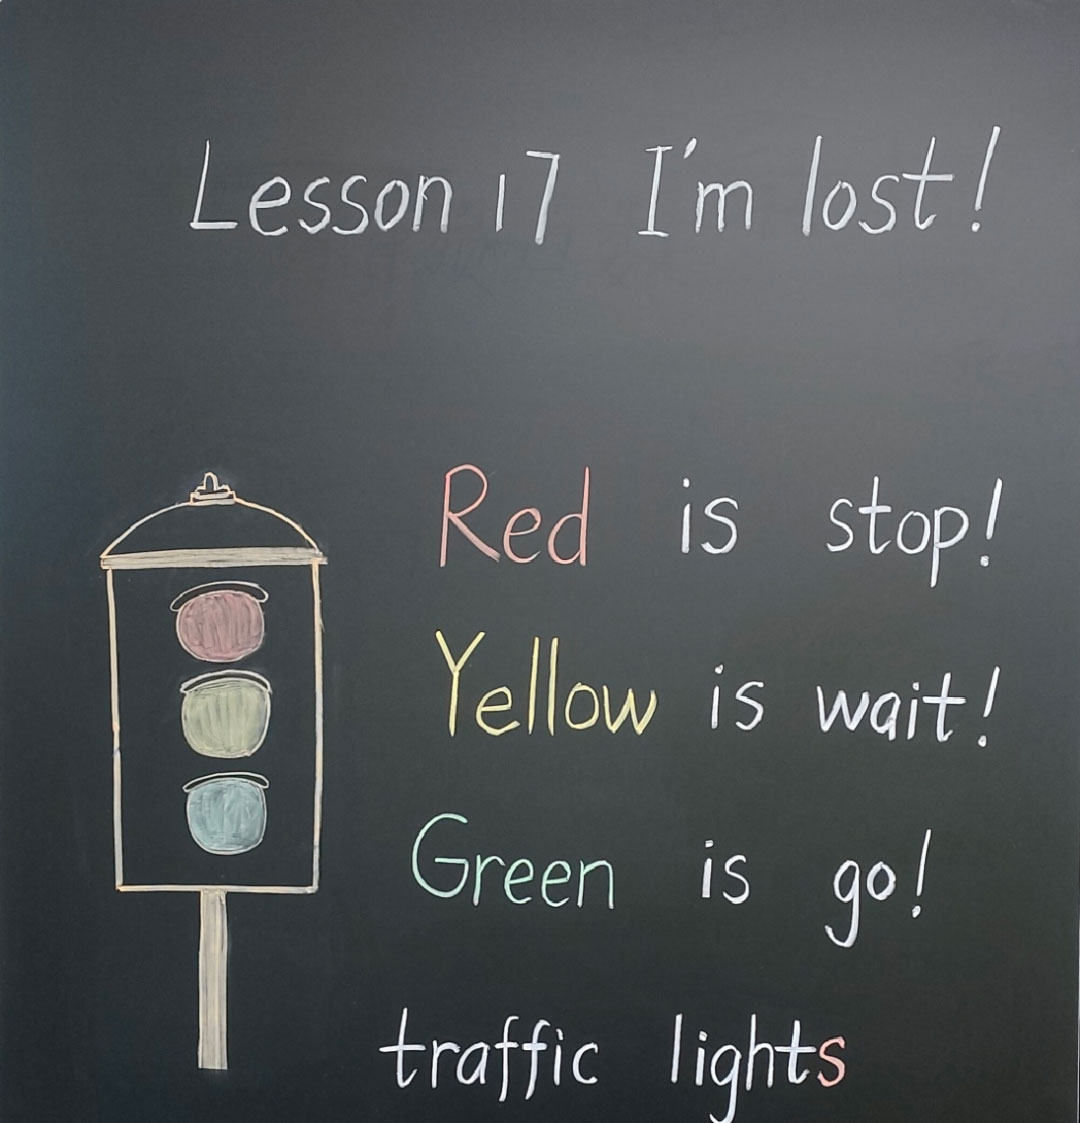 Lesson 17 I'm lost!
Red is stop!
Yellow is wait!
Green is go!
traffic lights